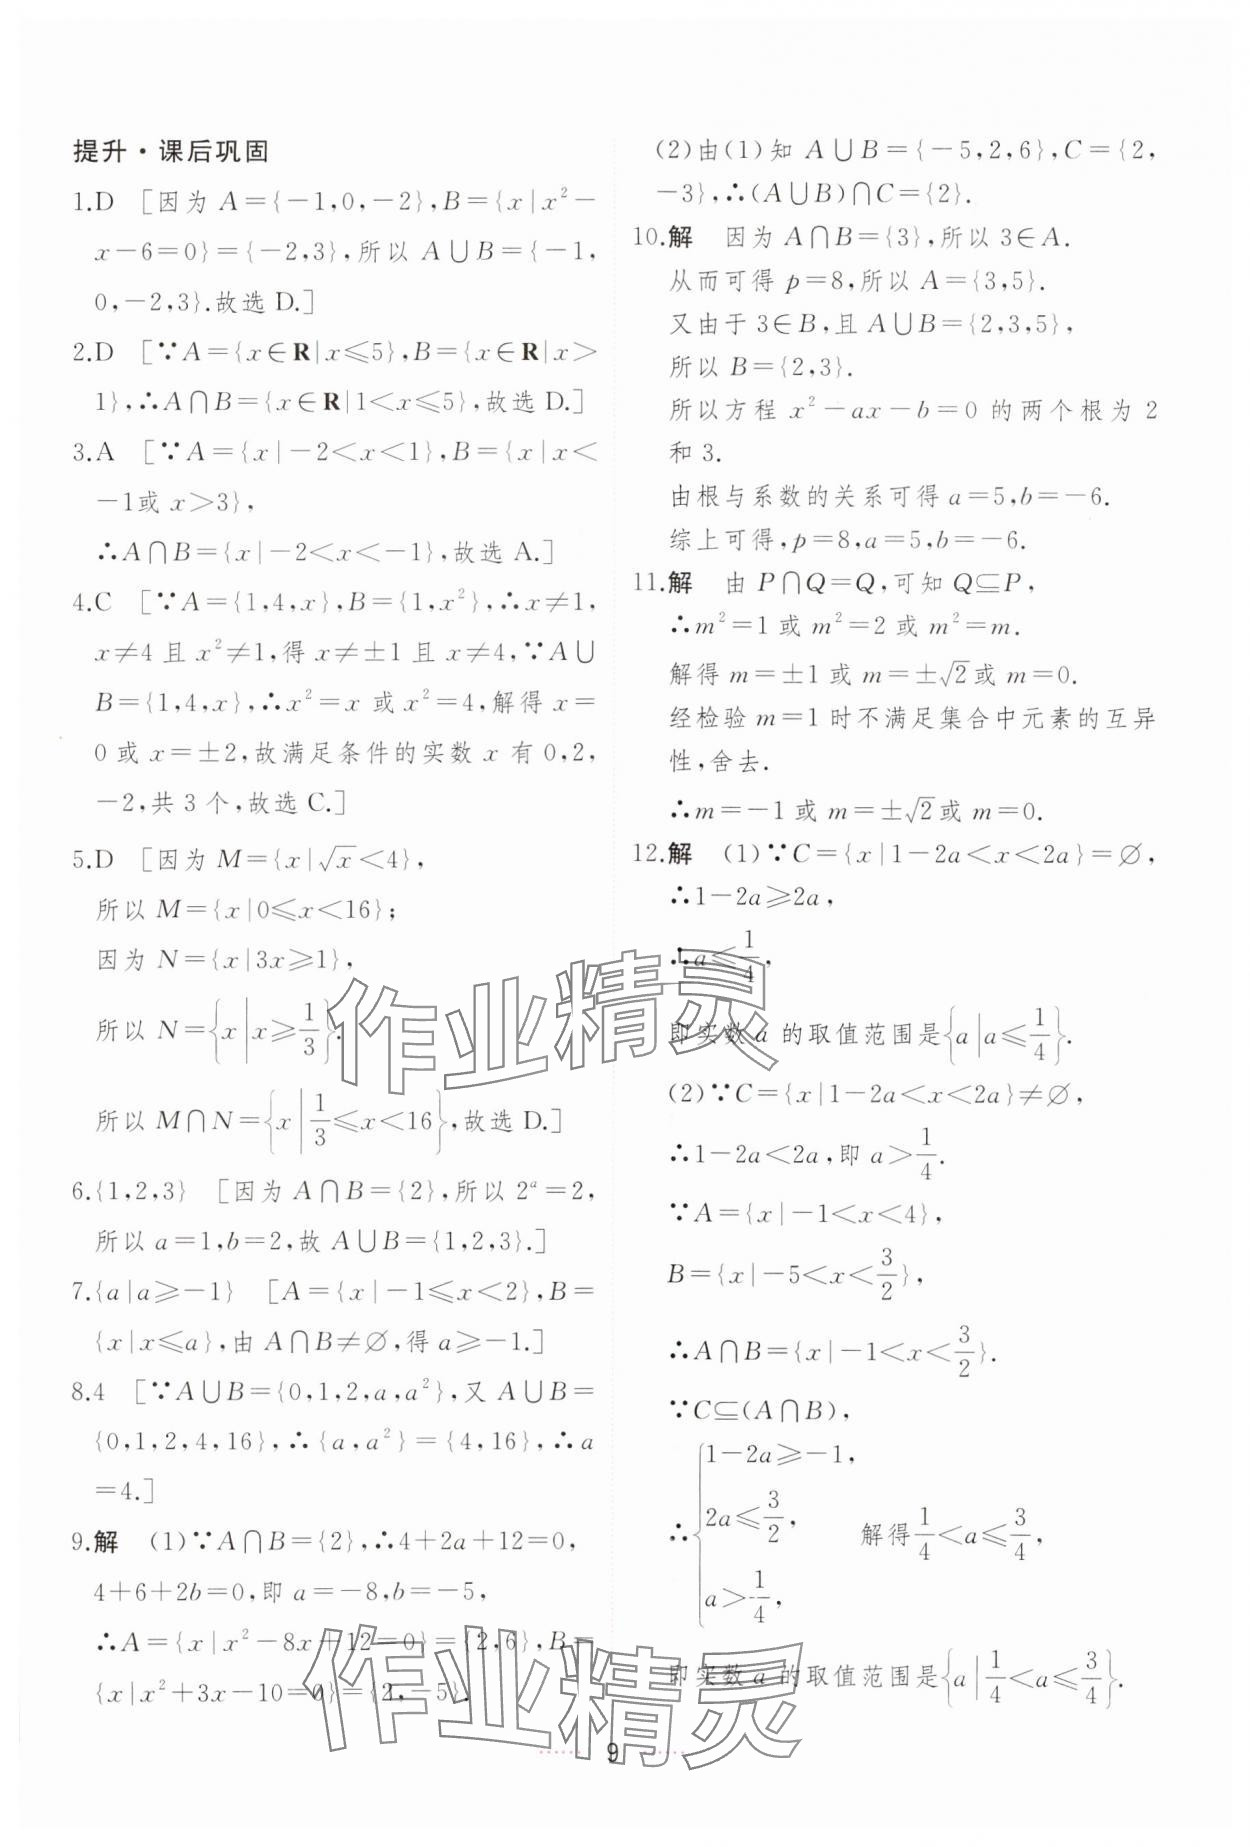 提升·课后巩固
1.D [因为 A={-1,0,-2},B={x|x²-
x-6=0}={-2,3},所以 A∪B={-1,
0,-2,3}.故选 D.]
2.D [∵A={x∈R|x≤5},B={x∈R|x>
1},∴A∩B={x∈R|1<x≤5},故选 D.]
3.A [∵A={x|-2<x<1},B={x|x<
-1或 x>3},
∴A∩B={x|-2<x<-1},故选 A.]
4.C [∵A={1,4,x},B={1,x²},∴x≠1,
x≠4 且 x²≠1,得 x≠±1 且 x≠4,∵A∪
B={1,4,x},∴x²=x 或 x²=4,解得 x=
0 或 x=±2,故满足条件的实数 x 有 0,2,
-2,共 3 个,故选 C.]
5.D [因为 M={x|√x<4},
所以 M={x|0≤x<16};
因为 N={x|3x≥1},
所以 N={x|x≥1/3}.
所以 M∩N={x|1/3≤x<16},故选 D.]
6.{1,2,3} [因为 A∩B={2},所以 2ᵃ=2,
所以 a=1,b=2,故 A∪B={1,2,3}.]
7.{a|a≥-1} [A={x|-1≤x<2},B=
{x|x≤a},由 A∩B≠∅,得 a≥-1.]
8.4 [∵A∪B={0,1,2,a,a²},又 A∪B=
{0,1,2,4,16},∴{a,a²}={4,16},∴a
=4.]
9.解 (1)∵A∩B={2},∴4+2a+12=0,
4+6+2b=0,即 a=-8,b=-5,
∴A={x|x²-8x+12=0}={2,6},B=
{x|x²+3x-10=0}={2,-5}.
(2)由(1)知 A∪B={-5,2,6},C={2,
-3},∴(A∪B)∩C={2}.
10.解 因为 A∩B={3},所以 3∈A.
从而可得 p=8,所以 A={3,5}.
又由于 3∈B,且 A∪B={2,3,5},
所以 B={2,3}.
所以方程 x²-ax-b=0 的两个根为 2
和 3.
由根与系数的关系可得 a=5,b=-6.
综上可得,p=8,a=5,b=-6.
11.解 由 P∩Q=Q,可知 Q⊆P,
∴m²=1 或 m²=2 或 m²=m.
解得 m=±1 或 m=±√2或 m=0.
经检验 m=1 时不满足集合中元素的互异
性,舍去.
∴m=-1 或 m=±√2或 m=0.
12.解 (1)∵C={x|1-2a<x<2a}=∅,
∴1-2a≥2a,
∴a≤1/4,
即实数 a 的取值范围是{a|a≤1/4}.
(2)∵C={x|1-2a<x<2a}≠∅,
∴1-2a<2a,即 a>1/4.
∵A={x|-1<x<4},
B={x|-5<x<3/2},
∴A∩B={x|-1<x<3/2}.
∵C⊆(A∩B),
∴{1-2a≥-1,
2a≤3/2, 解得1/4<a≤3/4,
a>1/4,
即实数 a 的取值范围是{a|1/4<a≤3/4}.
作业精灵
作业精灵
9